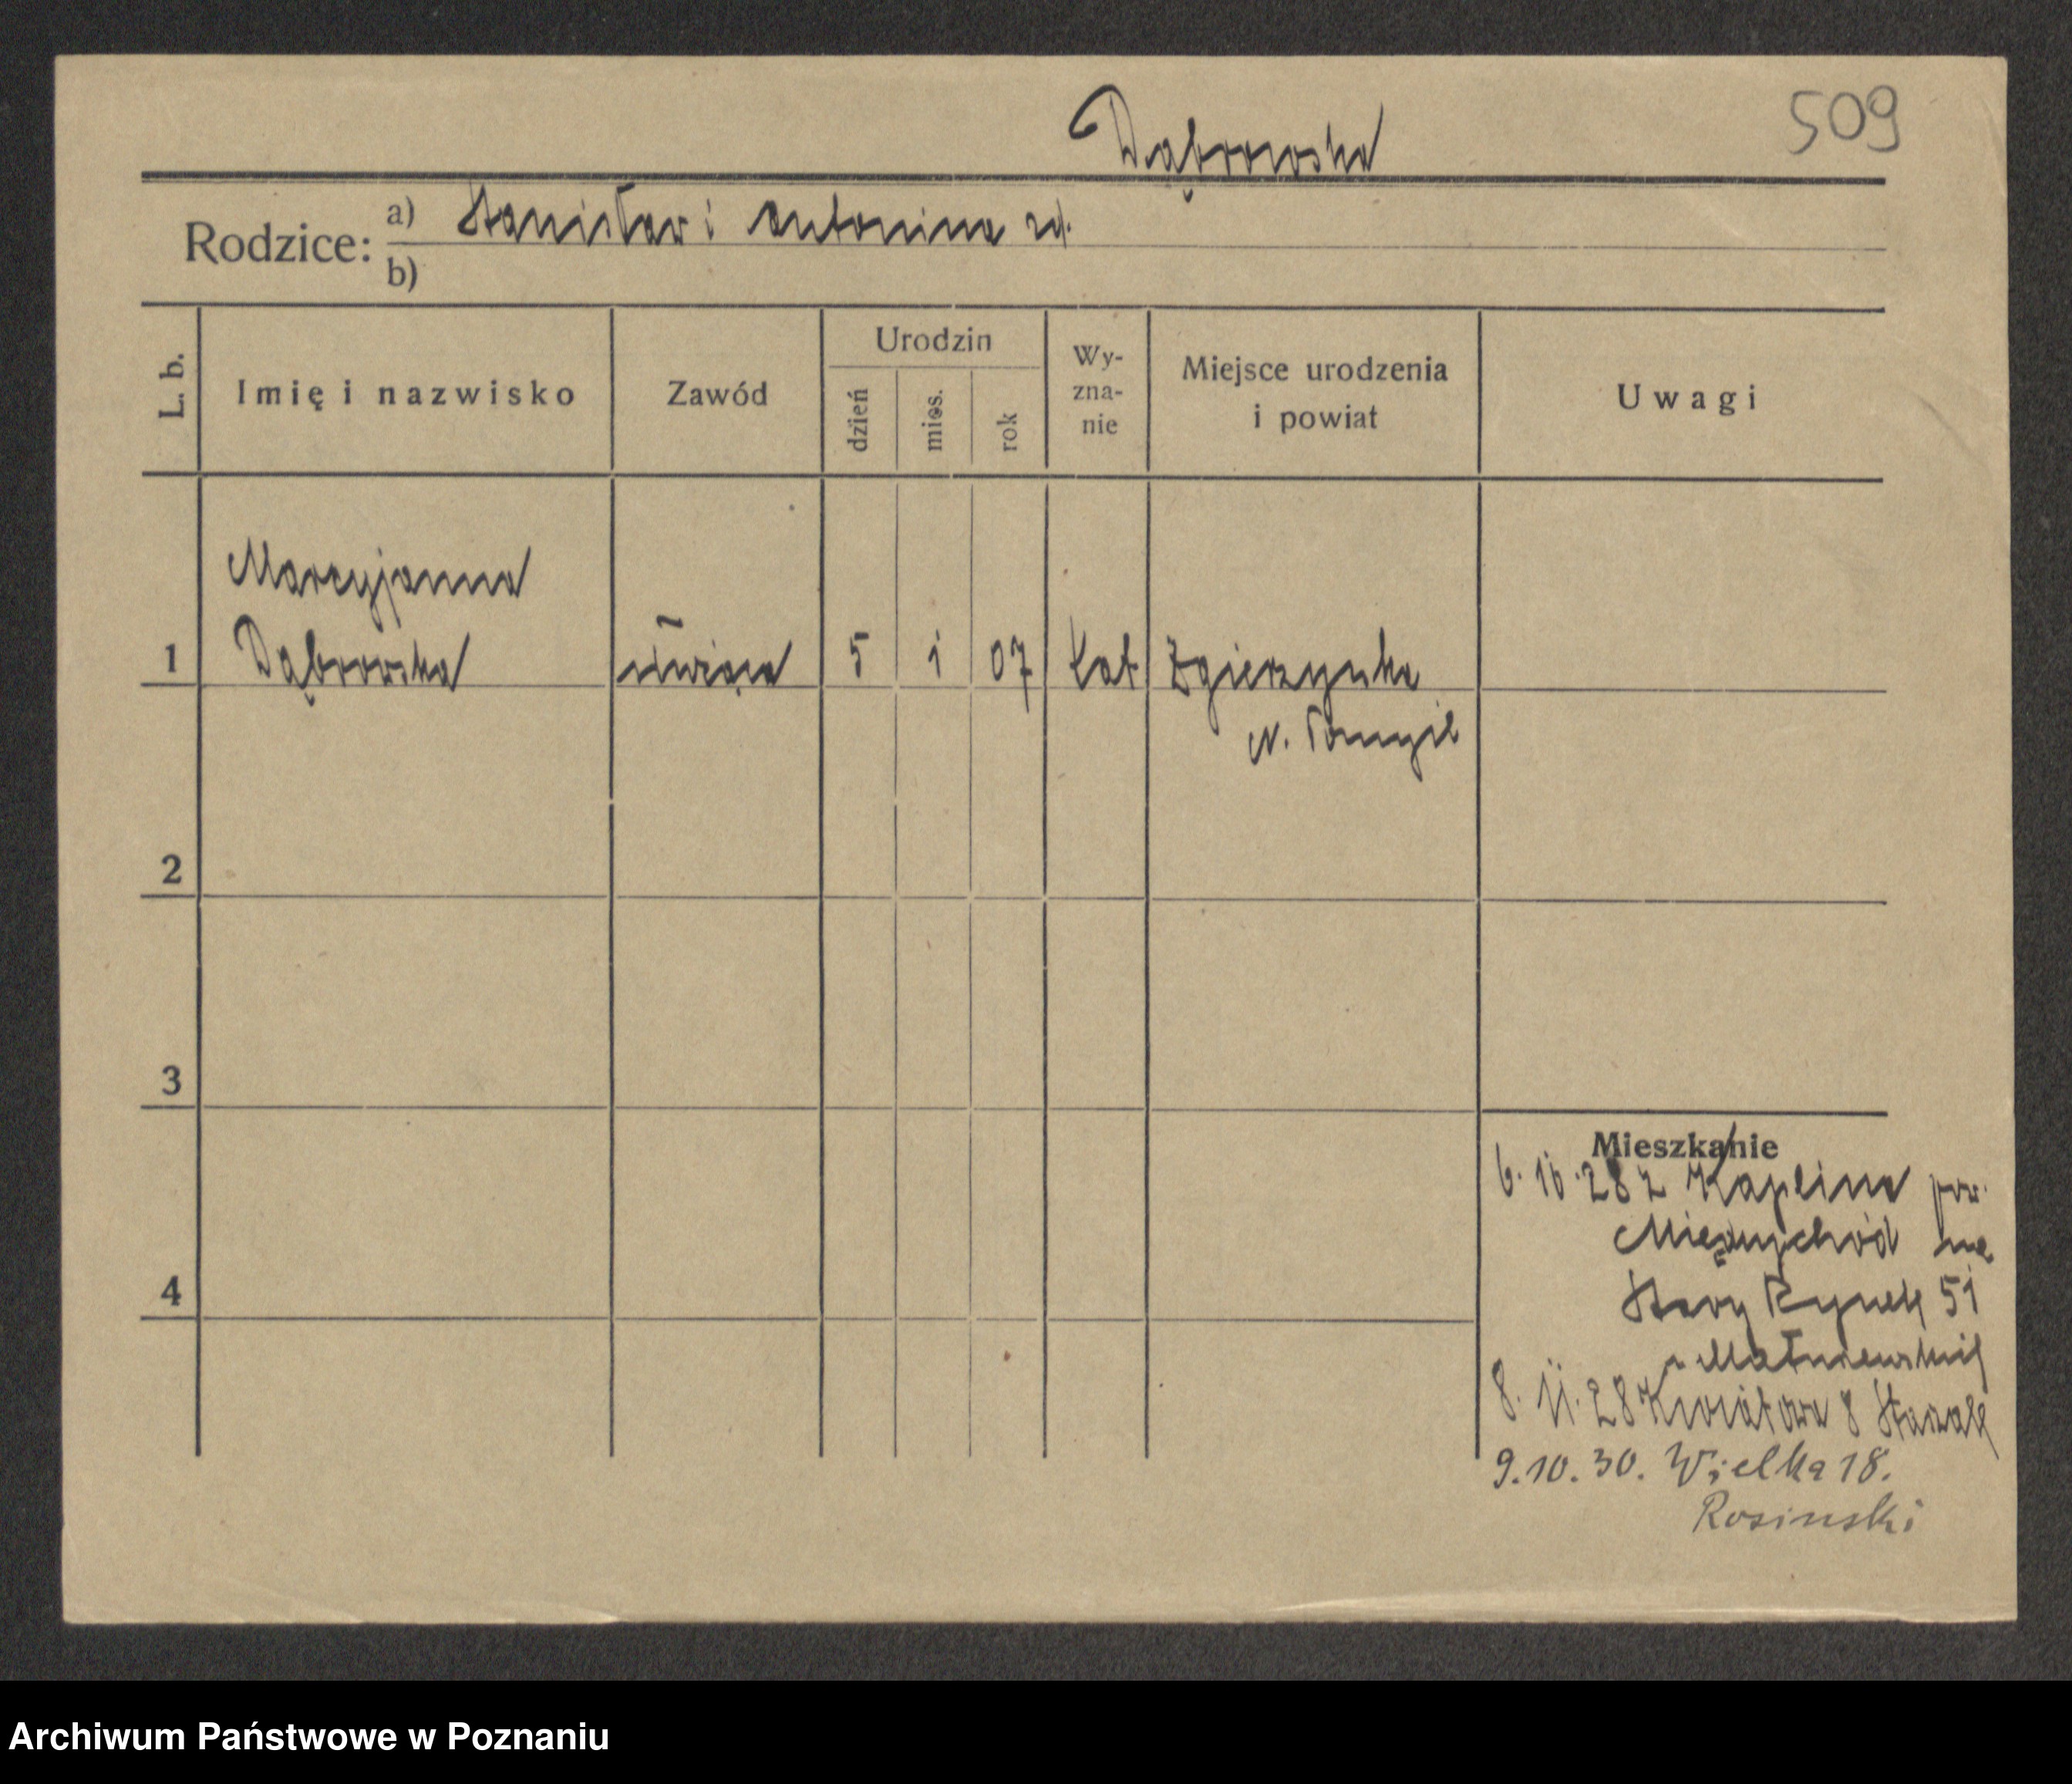 509
Dąbrowska
Rodzice: a) Stanisław i Antonina zd.
b)
L. b.
Imię i nazwisko
Zawód
Urodzin
dzień
mies.
rok
Wy-
zna-
nie
Miejsce urodzenia
i powiat
Uwagi
Marcyjanna
1 Dąbrowska służąca 5 1 07 kat Zgierzynka
N. Tomyśl
2
3
4
Mieszkanie
6. 10. 28 z Kaplina pow.
Międzychód na
Stary Rynek 51
8. 11. 28 Kwiatowa 8
9. 10. 30. Wielka 18.
Rosinski
Archiwum Państwowe w Poznaniu